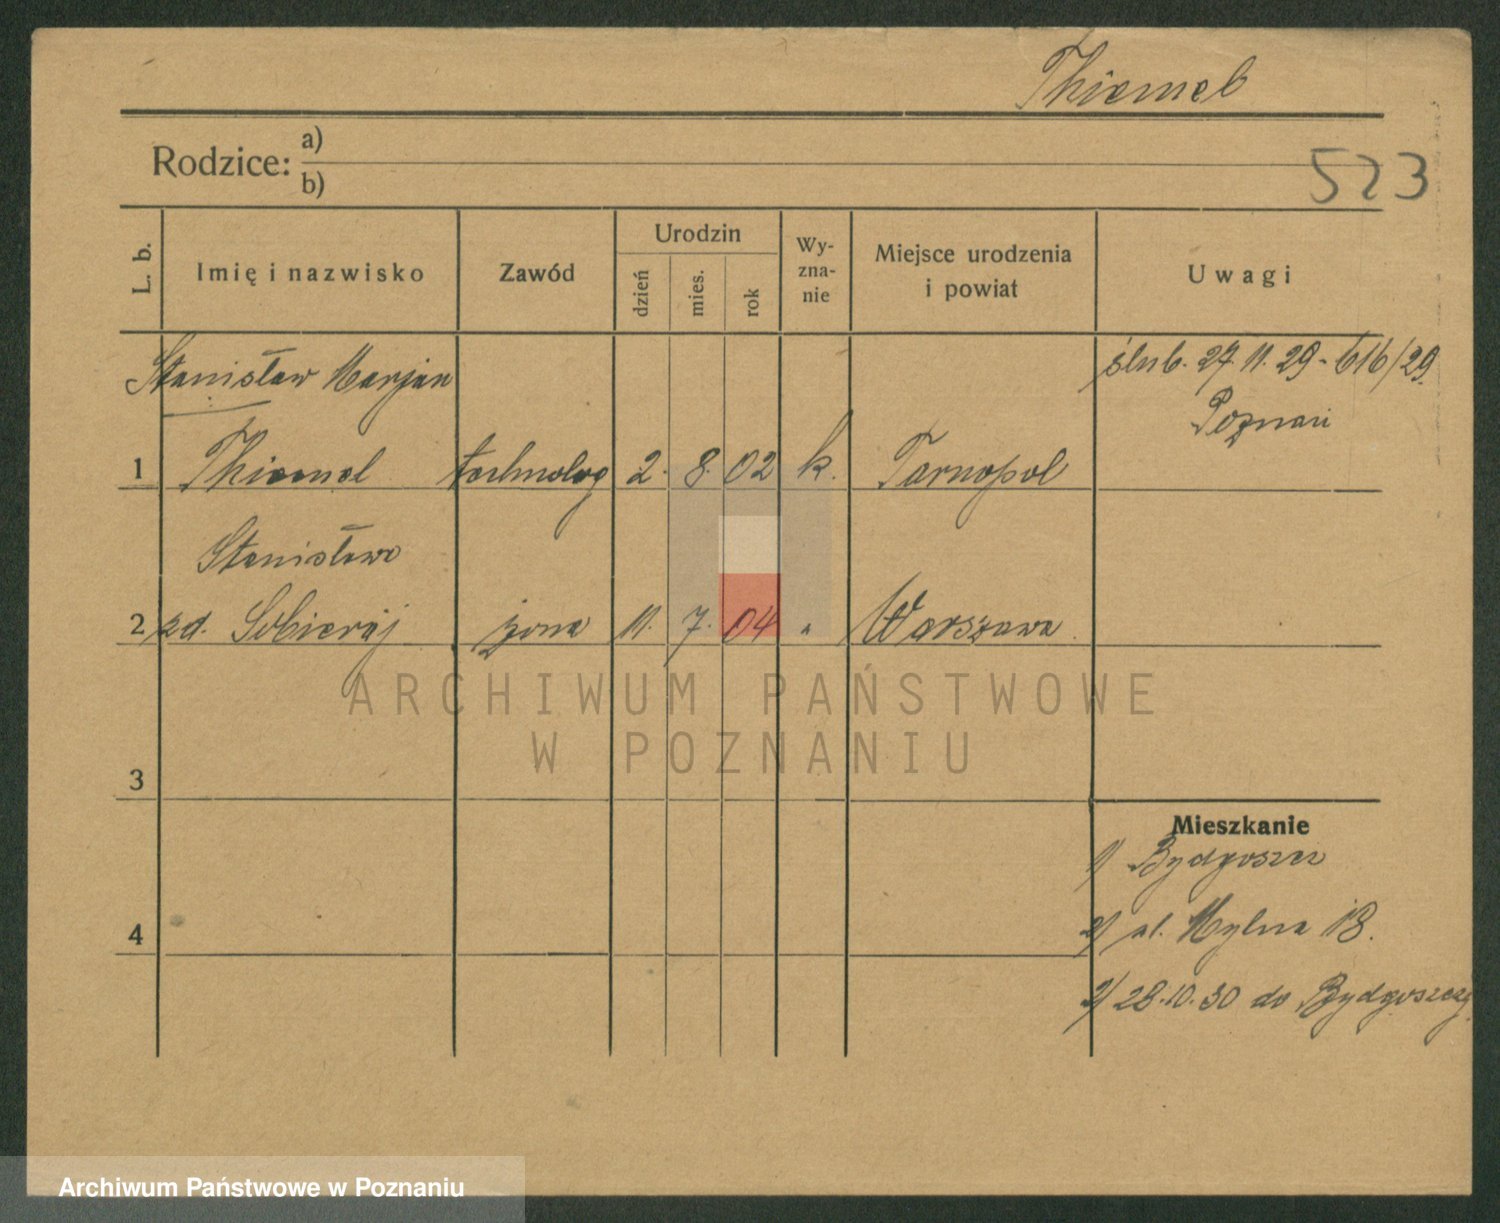 Thiemel
Rodzice: a)
b)
523
L. b.
Imię i nazwisko
Zawód
Urodzin
dzień
mies.
rok
Wy-
zna-
nie
Miejsce urodzenia
i powiat
Uwagi
Stanisław Marjan
ślub. 27. 11. 29 - 616/29.
Poznań
1 Thiemel technolog 2. 8. 02 k. Tarnopol
Stanisława
2 zd. Sobieraj żona 11. 7. 04 " Warszawa
ARCHIWUM PAŃSTWOWE
W POZNANIU
3
Mieszkanie
1/ Bydgoszcz
4
2/ ul. Mylna 18.
3/ 28.10.30 do Bydgoszczy
Archiwum Państwowe w Poznaniu